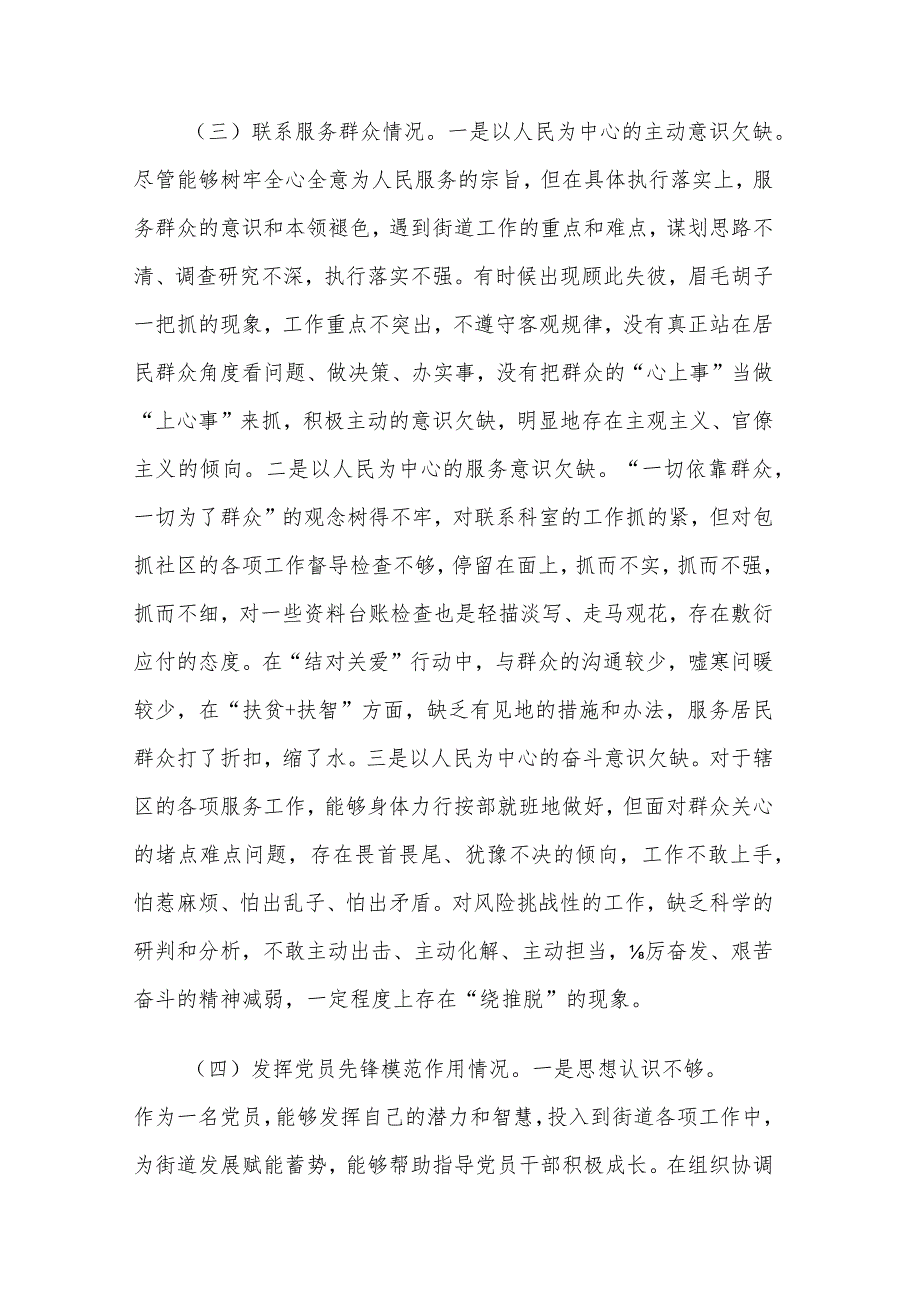 （三）联系服务群众情况。一是以人民为中心的主动意识欠缺。
尽管能够树牢全心全意为人民服务的宗旨，但在具体执行落实上，服
务群众的意识和本领褪色，遇到街道工作的重点和难点，谋划思路不
清、调查研究不深，执行落实不强。有时候出现顾此失彼，眉毛胡子
一把抓的现象，工作重点不突出，不遵守客观规律，没有真正站在居
民群众角度看问题、做决策、办实事，没有把群众的“心上事”当做
“上心事”来抓，积极主动的意识欠缺，明显地存在主观主义、官僚
主义的倾向。二是以人民为中心的服务意识欠缺。“一切依靠群众，
一切为了群众”的观念树得不牢，对联系科室的工作抓的紧，但对包
抓社区的各项工作督导检查不够，停留在面上，抓而不实，抓而不强，
抓而不细，对一些资料台账检查也是轻描淡写、走马观花，存在敷衍
应付的态度。在“结对关爱”行动中，与群众的沟通较少，嘘寒问暖
较少，在“扶贫+扶智”方面，缺乏有见地的措施和办法，服务居民
群众打了折扣，缩了水。三是以人民为中心的奋斗意识欠缺。对于辖
区的各项服务工作，能够身体力行按部就班地做好，但面对群众关心
的堵点难点问题，存在畏首畏尾、犹豫不决的倾向，工作不敢上手，
怕惹麻烦、怕出乱子、怕出矛盾。对风险挑战性的工作，缺乏科学的
研判和分析，不敢主动出击、主动化解、主动担当，⅛厉奋发、艰苦
奋斗的精神减弱，一定程度上存在“绕推脱”的现象。
（四）发挥党员先锋模范作用情况。一是思想认识不够。
作为一名党员，能够发挥自己的潜力和智慧，投入到街道各项工作中，
为街道发展赋能蓄势，能够帮助指导党员干部积极成长。在组织协调